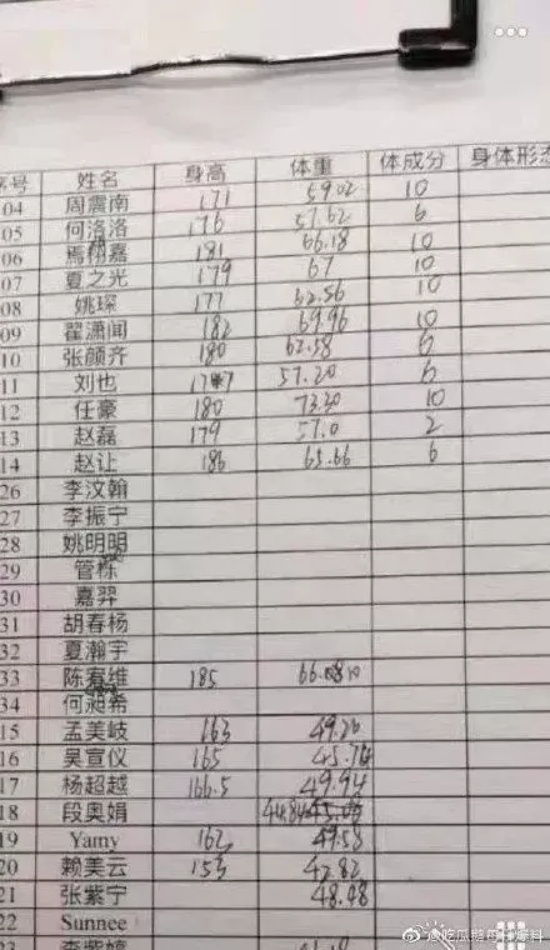 序号 姓名 身高 体重 体成分 身体形态
04 周震南 171 59.02 10
05 何洛洛 176 57.62 6
06 焉栩嘉 181 66.18 10
07 夏之光 179 67 10
08 姚琛 177 62.56 10
09 翟潇闻 182 69.96 10
10 张颜齐 180 62.58 6
11 刘也 17 7 57.20 6
12 任豪 180 73.30 10
13 赵磊 179 57.0 2
14 赵让 186 65.66 6
26 李汶翰
27 李振宁
28 姚明明
29 管栎
30 嘉羿
31 胡春杨
32 夏瀚宇
33 陈宥维 185 66.
34 何昶希
15 孟美岐 163 49.26
16 吴宣仪 165 45.76
17 杨超越 166.5 49.94
18 段奥娟 44.84
19 Yamy 162 49.58
20 赖美云 153 42.82
21 张紫宁 48.48
22 Sunnee
23 李紫婷